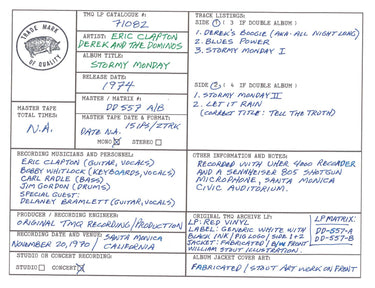 TMQ LP CATALOGUE #:
71082
TRADE MARK OF QUALITY
ARTIST: ERIC CLAPTON
DEREK AND THE DOMINOS
ALBUM TITLE:
STORMY MONDAY
RELEASE DATE:
1974
MASTER / MATRIX #:
DD 557 A/B
MASTER TAPE
TOTAL TIMES:
N.A.
MASTER TAPE DATE & FORMAT:
DATE N.A. 15 IPS/2TRK
MONO STEREO
TRACK LISTINGS:
SIDE 1 ( 3 IF DOUBLE ALBUM )
1. DEREK'S BOOGIE (AKA: ALL NIGHT LONG)
2. BLUES POWER
3. STORMY MONDAY I
SIDE 2 ( 4 IF DOUBLE ALBUM )
1. STORMY MONDAY II
2. LET IT RAIN
(CORRECT TITLE: TELL THE TRUTH)
RECORDING MUSICIANS AND PERSONNEL:
ERIC CLAPTON (GUITAR, VOCALS)
BOBBY WHITLOCK (KEYBOARDS, VOCALS)
CARL RADLE (BASS)
JIM GORDON (DRUMS)
SPECIAL GUEST:
DELANEY BRAMLETT (GUITAR, VOCALS)
OTHER INFORMATION AND NOTES:
RECORDED WITH UHER 4000 RECORDER
AND A SENNHEISER 805 SHOTGUN
MICROPHONE, SANTA MONICA
CIVIC AUDITORIUM.
PRODUCER / RECORDING ENGINEER:
ORIGINAL TMQ RECORDING/PRODUCTION
RECORDING DATE AND VENUE:
NOVEMBER 20, 1970 / SANTA MONICA
CALIFORNIA
STUDIO OR CONCERT RECORDING:
STUDIO CONCERT
ORIGINAL TMQ ARCHIVE LP:
LP: RED VINYL
LABEL: GENERIC WHITE WITH
BLACK INK / PIG LOGO / SIDE 1+2
JACKET: FABRICATED / B/W FRONT
WILLIAM STOUT ILLUSTRATION.
LP MATRIX:
DD-557-A
DD-557-B
ALBUM JACKET COVER ART:
FABRICATED / STOUT ART WORK ON FRONT